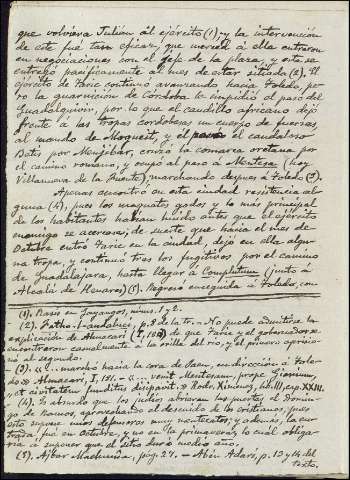 que volviera Julián al ejército (1), y la intervención
de este fué tan eficaz, que merced á ella entraron
en negociaciones con el jefe de la plaza, y esta se
entregó pacificamente al mes de estar sitiada (2). El
ejército de Taric continuó avanzando hacia Toledo, pe-
ro la guarnición de Córdoba le impidió el paso del
Guadalquivir, por lo que el caudillo africano dejó
frente á las tropas cordobesas un cuerpo de fuerzas
al mando de Mogueit, y el paso el caudaloso
Betis por Menjíbar, cruzó la comarca oretana por
el camino romano, y ocupó al paso á Mentesa (hoy
Villanueva de la Fuente), marchando despues á Toledo (3).
Apenas encontró en esta ciudad resistencia al-
guna (4), pues los magnates godos y lo más principal
de los habitantes habian huido antes que el ejército
enemigo se acercara; de suerte que hacia el mes de
Octubre entró Taric en la ciudad, dejó en ella algu-
na tropa, y continuó tras los fugitivos por el camino
de Guadalajara, hasta llegar á Complutum (junto á
Alcalá de Henares) (5). Regresó enseguida á Toledo, con
(1). Rasis en Gayangos, núms. 1 y 2.
(2). Fatho-l-andaluci, p. 8 de la tr. — No puede admitirse la
explicación de Almacari de que Taric y el gobernador se
encontraron casualmente á la orilla del rio, y el primero aprisio-
nó al segundo.
(3). « ... marchó hacia la cora de Jaen, en dirección á Tole-
do» Almacari, I,
et civitatem funditus dissipavit.» Rodr. Ximénez, lib. III, cap. XXIII.
(4). Es absurdo que los judíos abrieran las puertas el Domin-
go de Ramos, aprovechando el descuido de los cristianos, pues
esto supone unos defensores muy mentecatos; y además, la en-
trada fué en Octubre, y no en la primavera, lo cual obligaría
á suponer que el sitio duró medio año.
(5). Ajbar Machmuâa, pág. 27. — Aben Adarí, p. 13 y 14 del
texto.